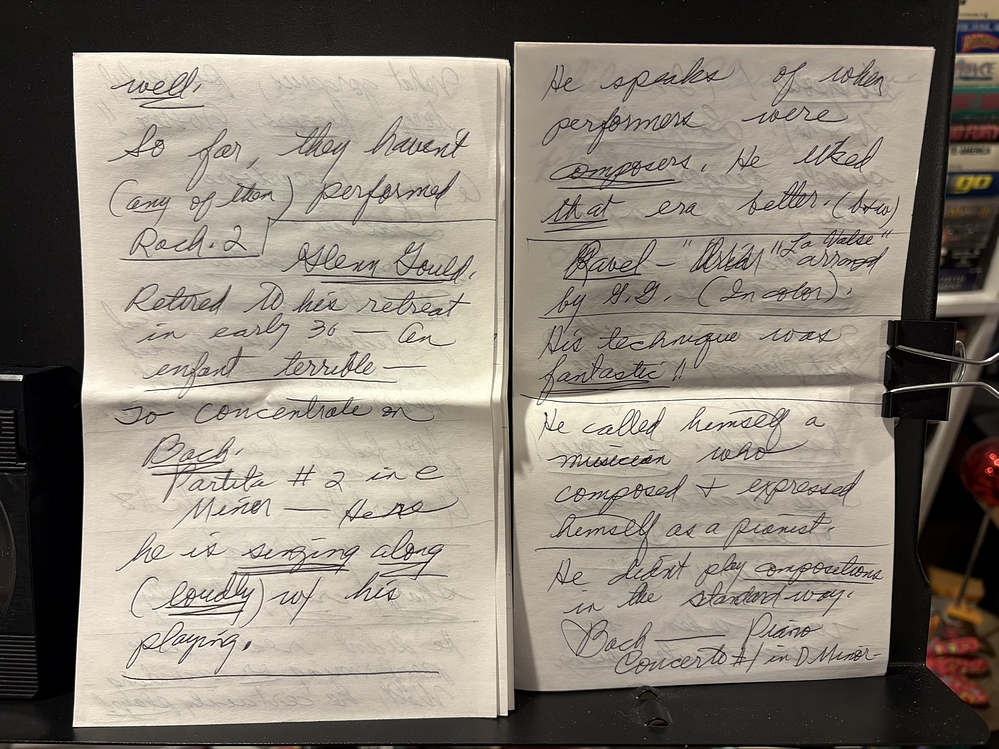 well.
So far, they haven't
(any of them) performed
Rach. 2
Glenn Gould.
Retired to his retreat
in early 30 — an
enfant terrible —
To concentrate on
Bach.
Partita # 2 in C
Minor — Here
he is singing along
(loudly) w/ his
playing.
He speaks of when
performers were
composers. He liked
that era better. (b+w)
Ravel — "La Valse"
arranged
by G.G. (In color).
His technique was
fantastic!!
He called himself a
musician who
composed & expressed
himself as a pianist.
He didn't play compositions
in the standard way.
Bach — Piano
Concerto #1 in D Minor -
go